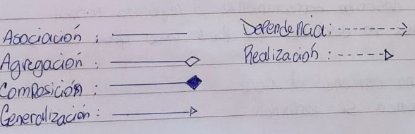 Asociación :
Agregación :
Composición :
Generalización :
Dependencia:
Realización :